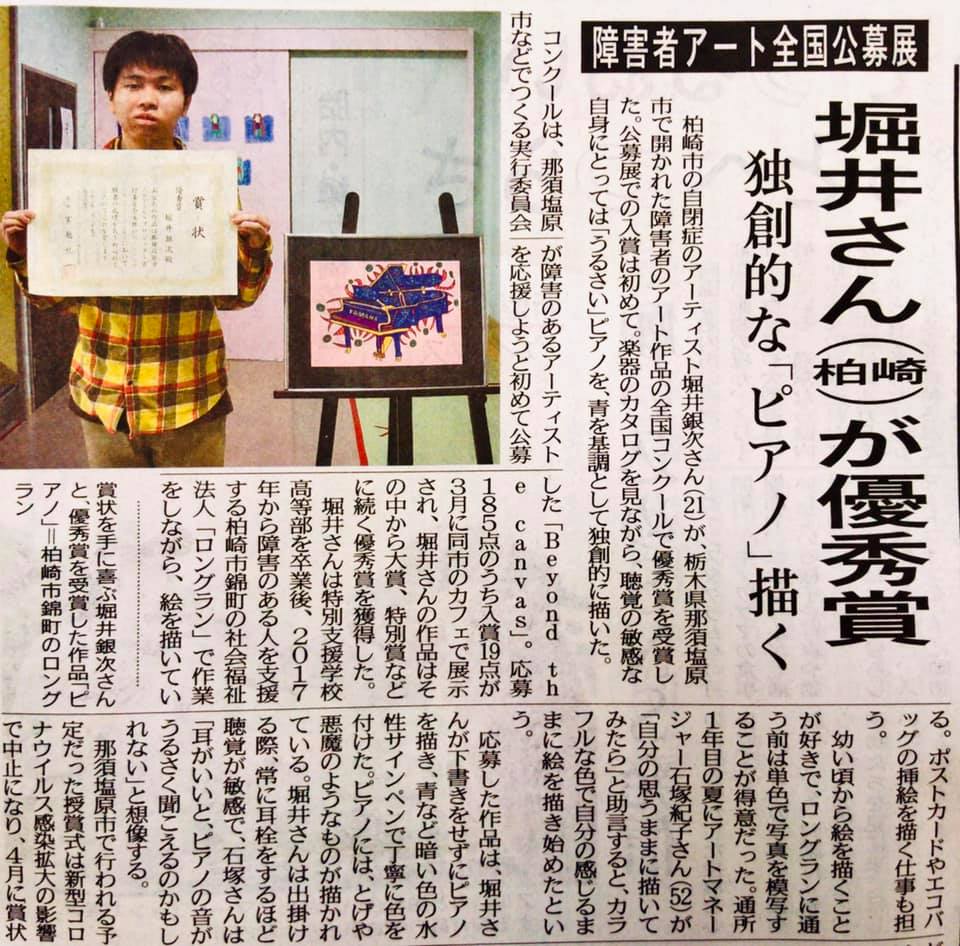 障害者アート全国公募展
堀井さん(柏崎)が優秀賞
独創的な「ピアノ」描く
柏崎市の自閉症のアーティスト堀井銀次さん(21)が、栃木県那須塩原
市で開かれた障害者のアート作品の全国コンクールで優秀賞を受賞し
た。公募展での入賞は初めて。楽器のカタログを見ながら、聴覚の敏感な
自身にとっては「うるさい」ピアノを、青を基調として独創的に描いた。
コンクールは、那須塩原
市などでつくる実行委員会
が障害のあるアーティスト
を応援しようと初めて公募
した「Beyond th
e canvas」。応募
185点のうち入賞19点が
3月に同市のカフェで展示
され、堀井さんの作品はそ
の中から大賞、特別賞など
に続く優秀賞を獲得した。
堀井さんは特別支援学校
高等部を卒業後、2017
年から障害のある人を支援
する柏崎市錦町の社会福祉
法人「ロングラン」で作業
をしながら、絵を描いてい
る。ポストカードやエコバ
ッグの挿絵を描く仕事も担
う。
幼い頃から絵を描くこと
が好きで、ロングランに通
う前は単色で写真を模写す
ることが得意だった。通所
1年目の夏にアートマネー
ジャー石塚紀子さん(52)が
「自分の思うままに描いて
みたら」と助言すると、カラ
フルな色で自分の感じるま
まに絵を描き始めたとい
う。
応募した作品は、堀井さ
んが下書きをせずにピアノ
を描き、青など暗い色の水
性サインペンで丁寧に色を
付けた。ピアノには、とげや
悪魔のようなものが描かれ
ている。堀井さんは出掛け
る際、常に耳栓をするほど
聴覚が敏感で、石塚さんは
「耳がいいと、ピアノの音が
うるさく聞こえるのかもし
れない」と想像する。
那須塩原市で行われる予
定だった授賞式は新型コロ
ナウイルス感染拡大の影響
で中止になり、4月に賞状
賞状を手に喜ぶ堀井銀次さん
と、優秀賞を受賞した作品「ピ
アノ」=柏崎市錦町のロング
ラン
賞状
優秀賞
YAMAHA